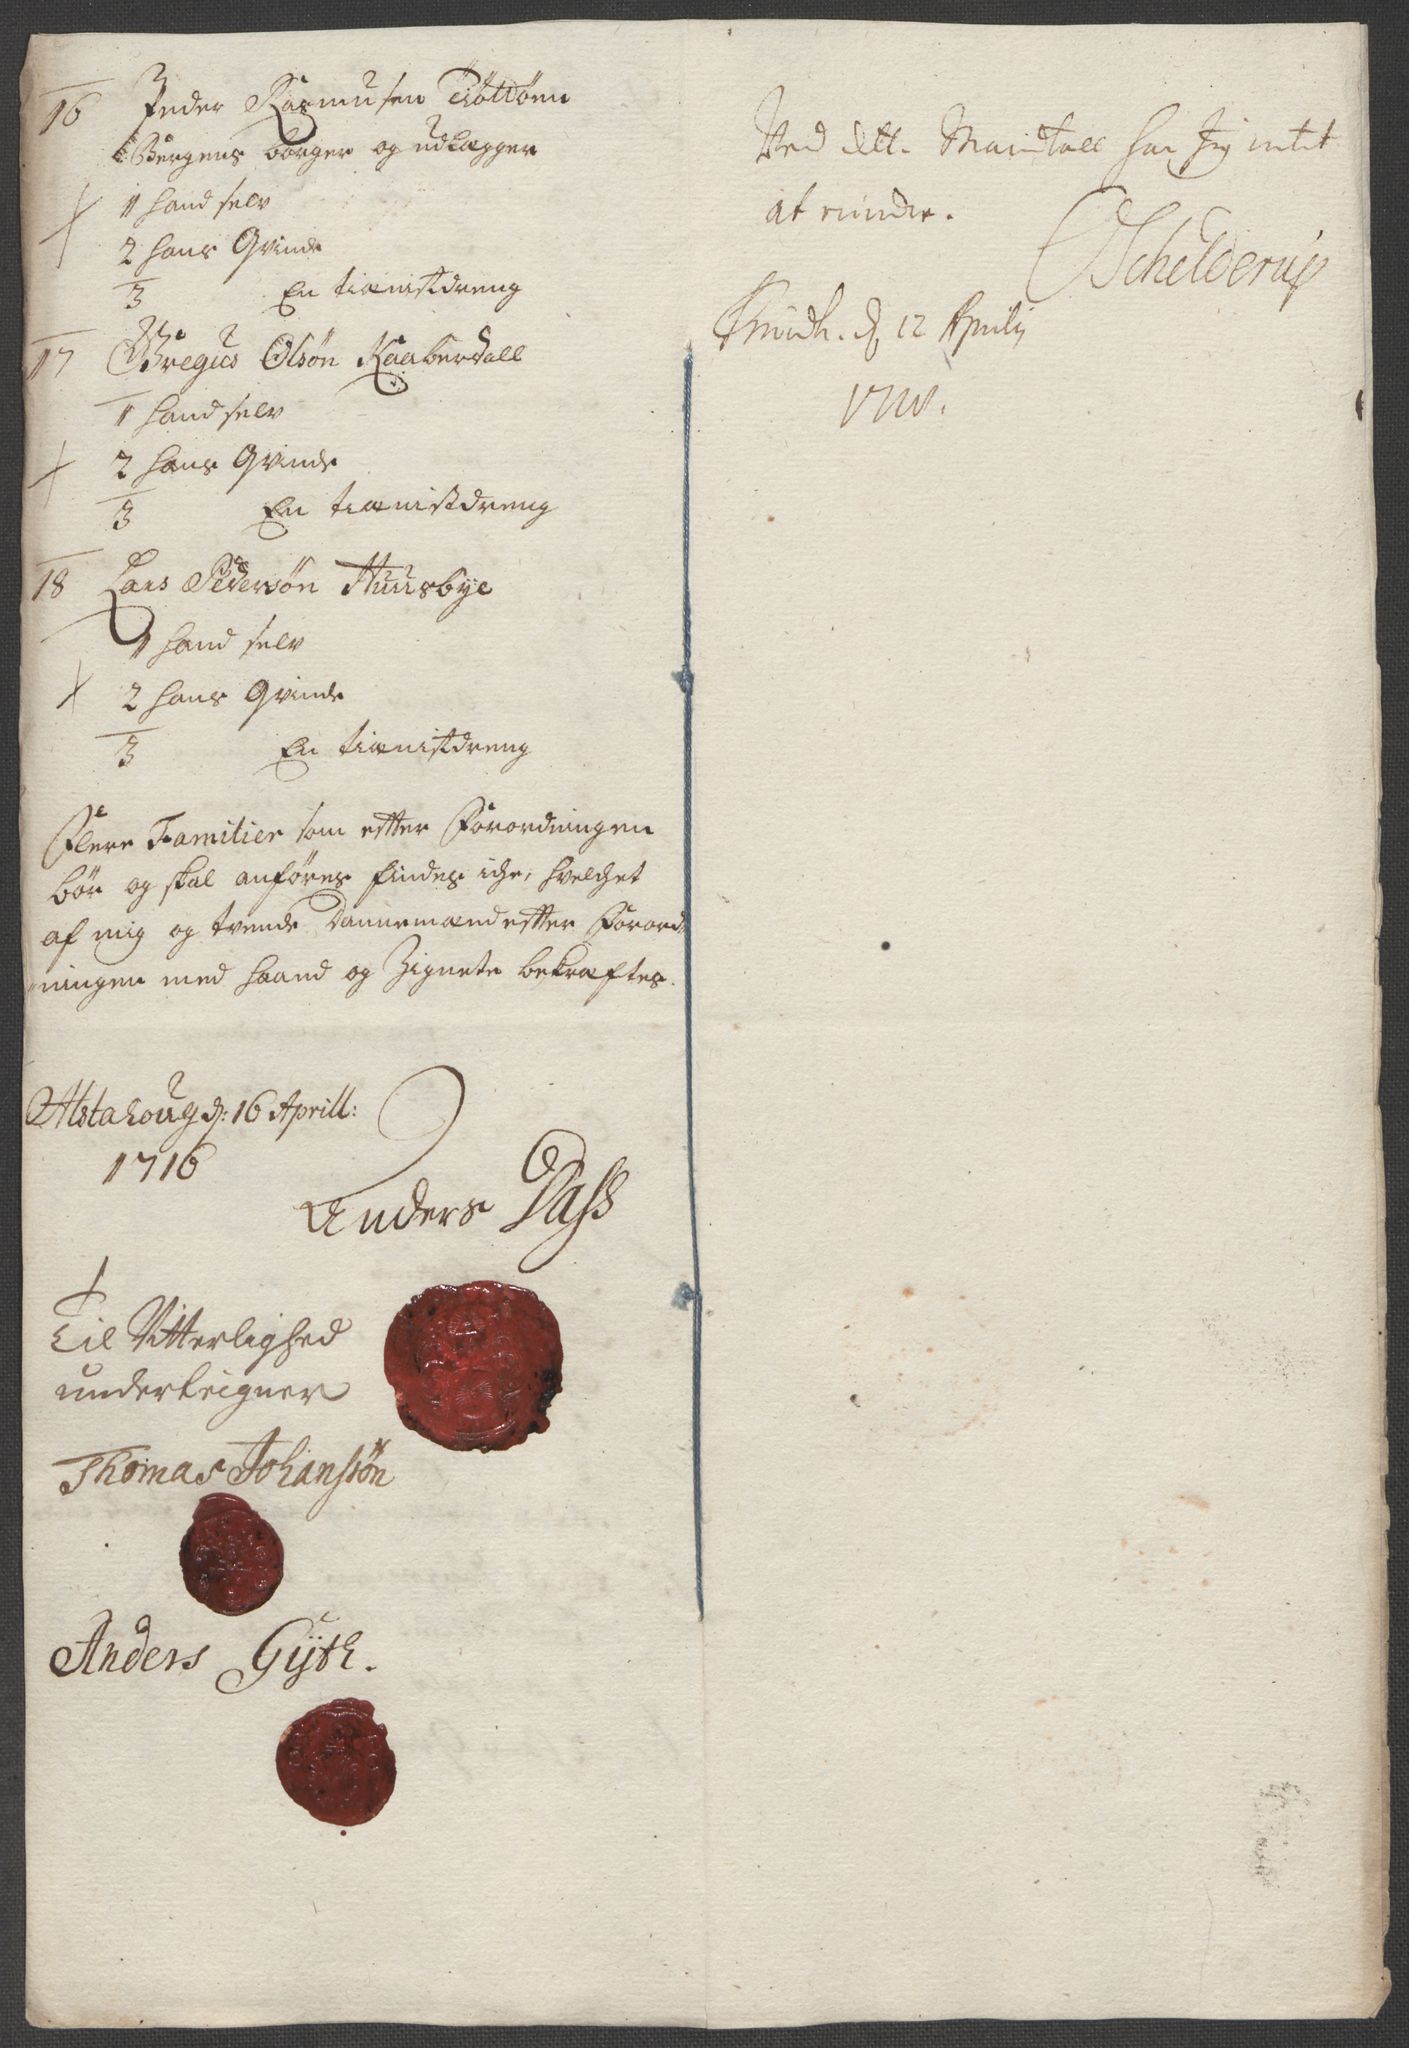 16 Peder Rasmusen Tiøttøen
Bergens borger og udlægger
1 hand selv
2 hans Qvinde
3 En tienistdreng
17 Gregus Olsøn Kaaberdall
1 hand selv
2 hans Qvinde
3 En tienistdreng
18 Lars Pedersøn Huusbye
1 hand selv
2 hans Qvinde
3 En tienistdreng
Flere Familier som efter Forordningen
bør og skal anføres findes iche, hvelchet
af mig og tvende Dannemænd efter Forord
ningen med haand og Zignete bekræftes.
Alstahoug d: 16 Aprill:
1716
Anders Dass
Til Vitterlighed
underteigner
Thomas Johanssøn
Anders Gyth.
Ved dette Mandtall har Jeg intet
at erindre.
Schelderup
d 12 Aprily